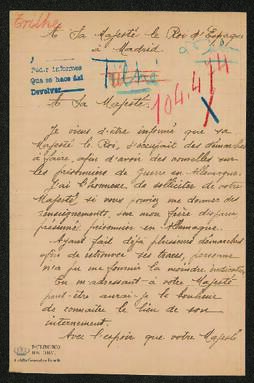 Treilhe
A Sa Majesté le Roi d'Espagne
à Madrid
Pedir informes
Que se hace así
Devolver
104.414
X
A Sa Majesté.
Je viens d'être informé que sa
Majesté le Roi, s'occupait des démarches
à faire, afin d'avoir des nouvelles sur
les prisonniers de Guerre en Allemagne.
J'ai l'honneur, de solliciter de votre
Majesté si vous pouviez me donner des
renseignements, sur mon frère disparu
présumé prisonnier en Allemagne.
Ayant fait déjà plusieurs démarches
afin de retrouver ses traces, personne
n'a pu me fournir la moindre indication
En m'adressant à votre Majesté
peut-être aurai-je le bonheur
de connaître le lieu de son
internement.
Avec l'espoir que votre Majesté
PATRIMONIO
NACIONAL